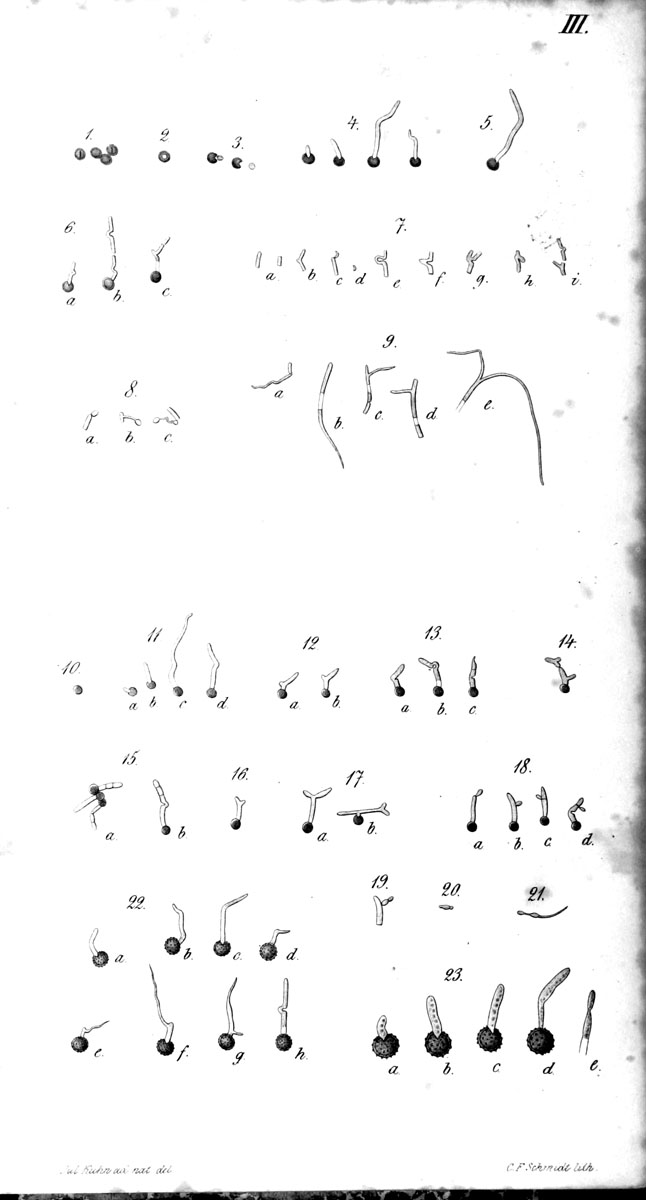 III.
1. 2 3. 4. 5.
6. 7.
a b. c. a b. c d e f. g. h. i.
8. 9.
a. b. c. a b. c. d e.
10. 11 12 13. 14.
a b c d. a. b. a b. c.
15. 16. 17. 18.
a. b a. b. a b. c. d.
22. 19. 20. 21.
a b. c. d.
23.
e. f. g. h. a. b. c. d. e.
Jul. Kuhn ad nat del C.F. Schmidt lith.